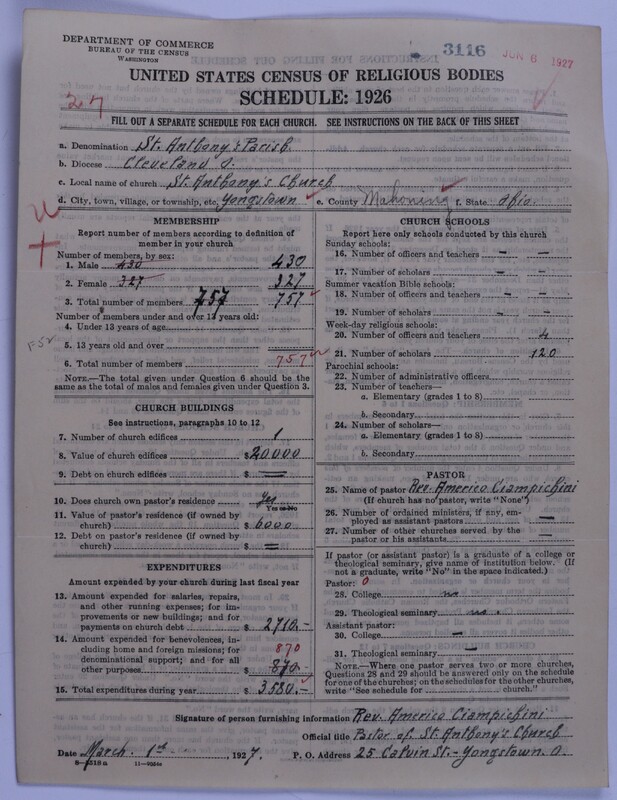 DEPARTMENT OF COMMERCE
BUREAU OF THE CENSUS
WASHINGTON
3116
JUN 8 1927
UNITED STATES CENSUS OF RELIGIOUS BODIES
SCHEDULE: 1926
27
FILL OUT A SEPARATE SCHEDULE FOR EACH CHURCH. SEE INSTRUCTIONS ON THE BACK OF THIS SHEET
a. Denomination St. Anthony's Parish
b. Diocese Cleveland O.
c. Local name of church St. Anthony's Church
d. City, town, village, or township, etc. Yongstown e. County Mahoning f. State Ohio
MEMBERSHIP
Report number of members according to definition of
member in your church
Number of members, by sex:
1. Male 430 430
2. Female 327 327
3. Total number of members 757 757
Number of members under and over 13 years old:
4. Under 13 years of age
5. 13 years old and over
6. Total number of members 757
NOTE.—The total given under Question 6 should be
same as the total of males and females given under Question 3.
CHURCH BUILDINGS
See instructions, paragraphs 10 to 12
7. Number of church edifices 1
8. Value of church edifices $20000
9. Debt on church edifices $ —
10. Does church own pastor's residence Yes
Yes or No
11. Value of pastor's residence (if owned by
church) $ 6000
12. Debt on pastor's residence (if owned by
church) $ =
EXPENDITURES
Amount expended by your church during last fiscal year
13. Amount expended for salaries, repairs,
and other running expenses; for im-
provements or new buildings; and for
payments on church debt $ 2710.-
14. Amount expended for benevolences, in-
cluding home and foreign missions; for 870
denominational support; and for all
other purposes $ 870.-
15. Total expenditures during year $ 3580.-
CHURCH SCHOOLS
Report here only schools conducted by this church
Sunday schools:
16. Number of officers and teachers — —
17. Number of scholars — —
Summer vacation Bible schools:
18. Number of officers and teachers — —
19. Number of scholars — —
Week-day religious schools:
20. Number of officers and teachers 4
21. Number of scholars 120
Parochial schools:
22. Number of administrative officers
23. Number of teachers—
a. Elementary (grades 1 to 8)
b. Secondary
24. Number of scholars—
a. Elementary (grades 1 to 8)
b. Secondary
PASTOR
25. Name of pastor Rev. Americo Ciampichini
(If church has no pastor, write "None")
26. Number of ordained ministers, if any, em-
ployed as assistant pastors —
27. Number of other churches served by the
pastor or his assistants —
If pastor (or assistant pastor) is a graduate of a college or
theological seminary, give name of institution below. (If
not a graduate, write "No" in the space indicated.)
Pastor: 0
28. College no
29. Theological seminary no.
Assistant pastor:
30. College —
31. Theological seminary —
NOTE.—Where one pastor serves two or more churches,
Questions 28 and 29 should be answered only on the schedule
for one of the churches; on the schedules for the other churches,
write "See schedule for church."
Signature of person furnishing information Rev. Americo Ciampichini
Official title Pastor of St. Anthony's Church
Date March 1st, 1927. P. O. Address 25 Calvin St. - Yongstown. O.
8—5318a 11—9034e